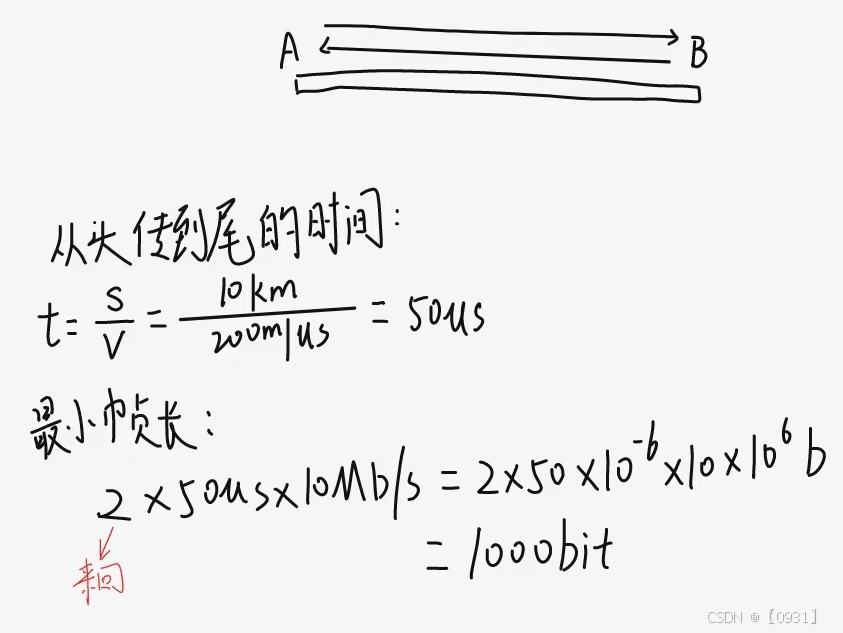 A B
从头传到尾的时间:
t= S/V = 10km/200m/us = 50us
最小帧长:
2×50us×10Mb/s = 2×50×10^-6×10×10^6 b
= 1000bit
来回
CSDN @【0931】